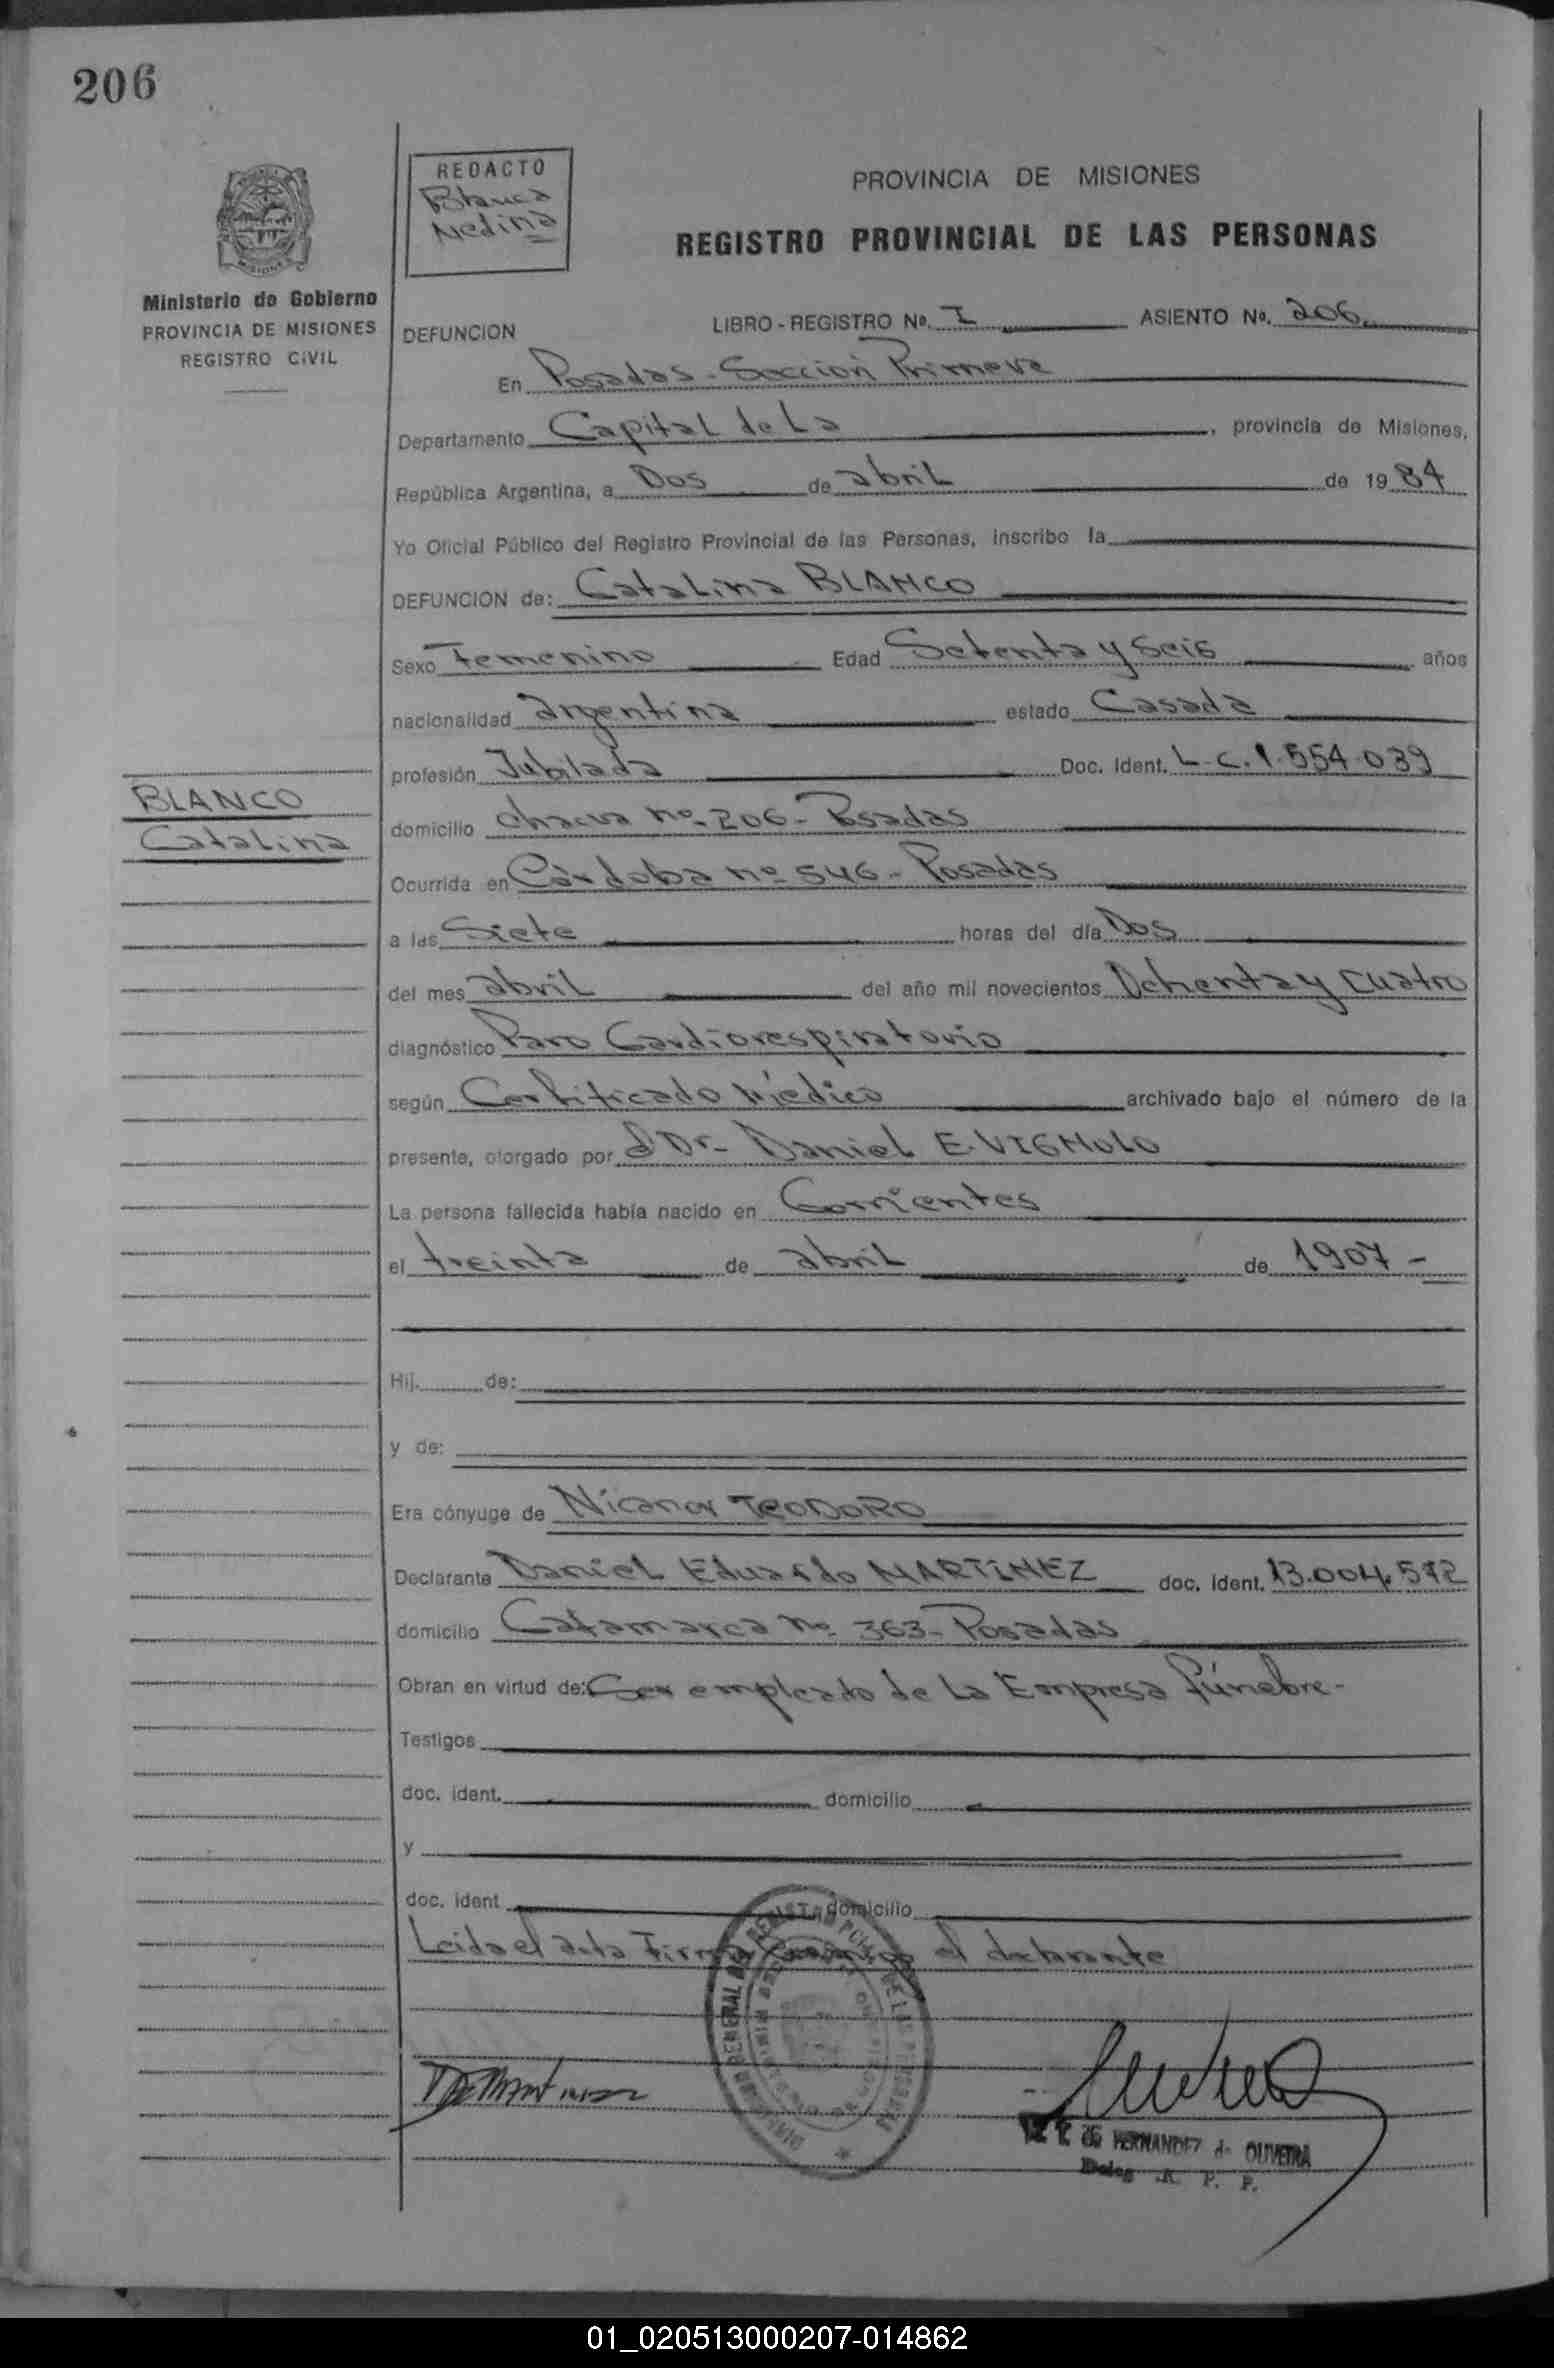 206
REDACTO
Blanca
Medina
PROVINCIA DE MISIONES
REGISTRO PROVINCIAL DE LAS PERSONAS
Ministerio de Gobierno
PROVINCIA DE MISIONES
REGISTRO CIVIL
DEFUNCION
LIBRO - REGISTRO Nº. I ASIENTO Nº. 206
En Posadas - Sección Primera
Departamento Capital de La, provincia de Misiones,
República Argentina, a Dos de abril de 1984
Yo Oficial Público del Registro Provincial de las Personas, inscribo la
DEFUNCION de: Catalina BLANCO
Sexo Femenino Edad Setenta y Seis años
nacionalidad argentina estado Casada
profesión Jubilada Doc. Ident. L.C. 1.554.039
BLANCO
Catalina
domicilio chacra nº 206 - Posadas
Ocurrida en Córdoba nº 546 - Posadas
a las Siete horas del día Dos
del mes abril del año mil novecientos Ochenta y cuatro
diagnóstico Paro Cardiorespiratorio
según Certificado Médico archivado bajo el número de la
presente, otorgado por Dr. Daniel E. VIGNOLO
La persona fallecida había nacido en Corrientes
el treinta de abril de 1907 -
Hij. de:
y de:
Era cónyuge de Nicanor TEODORO
Declarante Daniel Eduardo MARTINEZ doc. ident. 13.004.572
domicilio Catamarca nº 363 - Posadas
Obran en virtud de: Ser empleado de La Empresa fúnebre -
Testigos
doc. ident. domicilio
y
doc. ident domicilio
Leida el acta Firma el declarante
HERNANDEZ de OLIVEIRA
R. P. P.
01_020513000207-014862